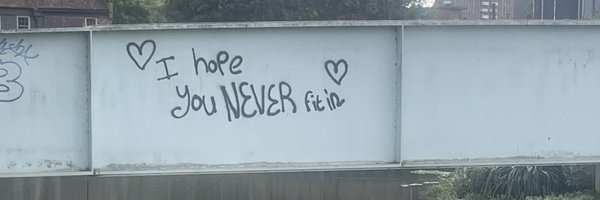 I hope
you NEVER fit in